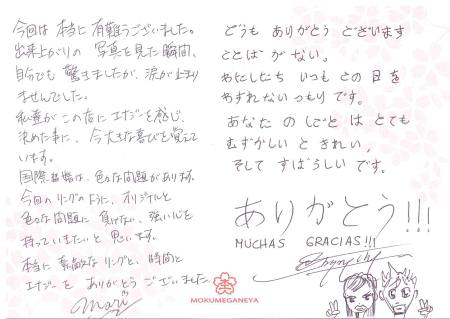 今回は本当に有難うございました。
出来上がりの写真を見た瞬間、
自分でも驚きましたが、涙が止まり
ませんでした。
私達がこの店にエナジーを感じ、
決めた事に、今大きな喜びを覚えて
います。
国際結婚は、色々な問題があります。
今回のリングのように、オリジナルと
色々な問題に負けない、強い心を
持っていきたいと思います。
本当に素敵なリングと、時間と
エナジーをありがとうございました。
Mari
どうも ありがとう ございます
ことば が ない。
わたしたち いつも この 日 を
わすれない つもり です。
あなた の しごと は とても
むずかしい と きれい,
そして すばらしい です。
ありがとう!!!
MUCHAS GRACIAS!!!
MOKUMEGANEYA